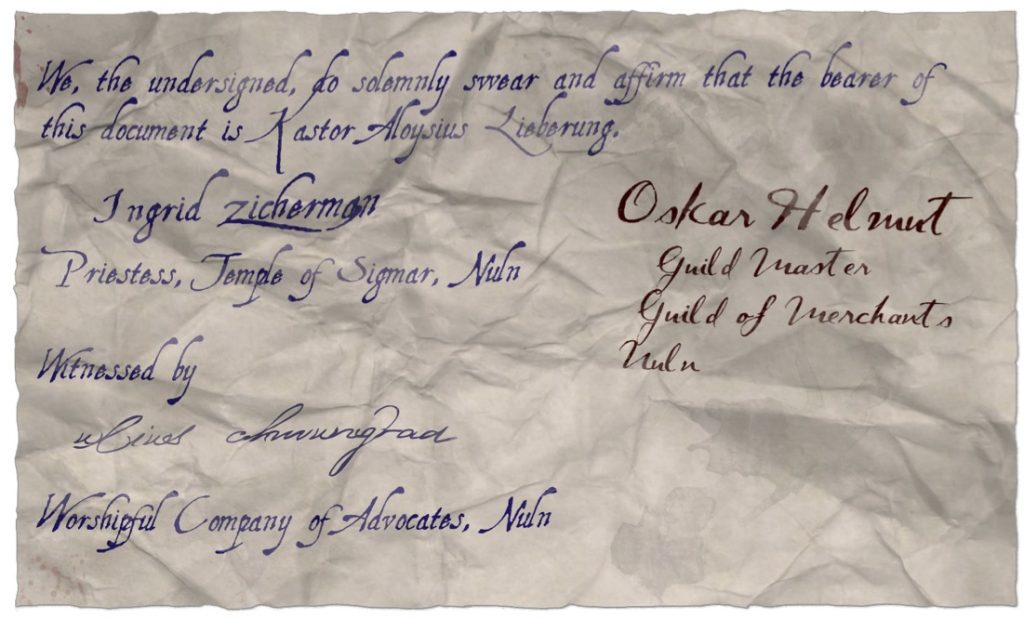 We, the undersigned, do solemnly swear and affirm that the bearer of
this document is Kastor Aloysius Lieberung.
Ingrid Zicherman
Priestess, Temple of Sigmar, Nuln
Oskar Helmut
Guild Master
Guild of Merchants
Nuln
Witnessed by
Worshipful Company of Advocates, Nuln